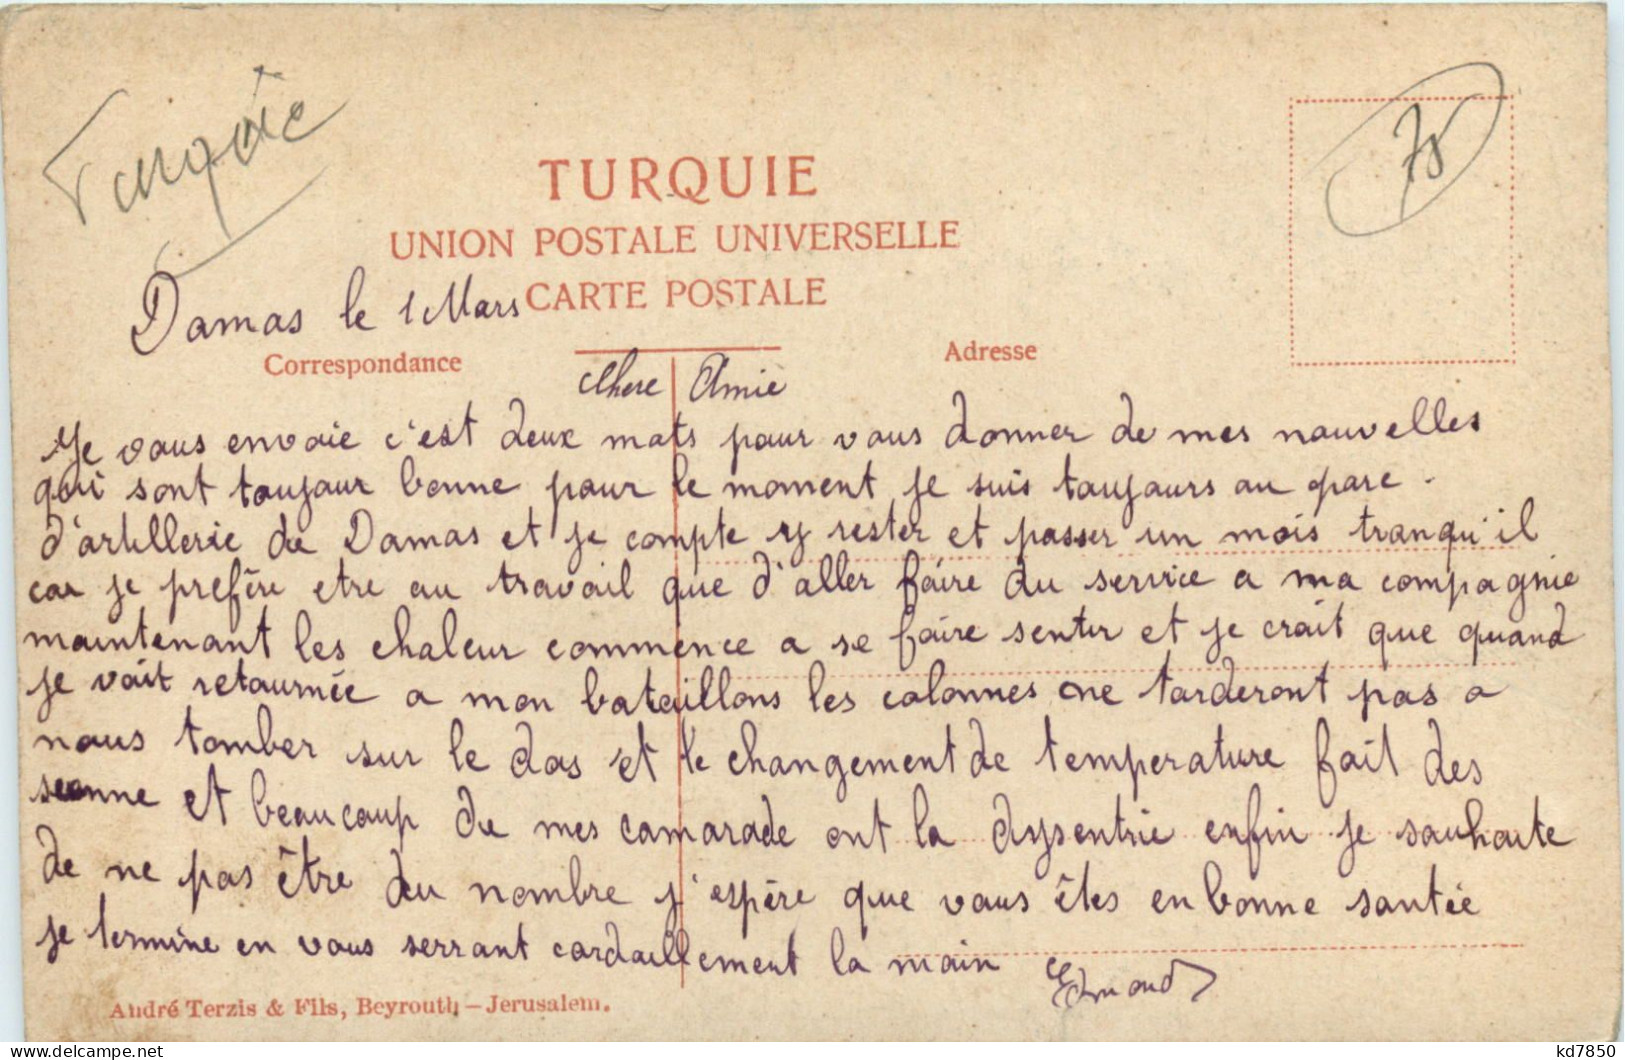 Turquie
75
TURQUIE
UNION POSTALE UNIVERSELLE
CARTE POSTALE
Damas le 1 Mars
Correspondance
Adresse
Chere Amie
Je vous envoie c'est deux mots pour vous donner de mes nouvelles
qui sont toujour bonne pour le moment je suis toujours au parc
d'artillerie de Damas et je compte y rester et passer un mois tranqu'il
car je prefère etre au travail que d'aller faire du service a ma compagnie
maintenant les chaleur commence a se faire sentir et je crait que quand
je vait retournée a mon bataillons les colonnes ne tarderont pas a
nous tomber sur le dos et le changement de temperature fait des
et beaucoup de mes camarade ont la dysentrie enfin je souhaite
de ne pas être du nombre j'espère que vous êtes en bonne santée
je termine en vous serrant cordaillement la main
Edmond
André Terzis & Fils, Beyrouth – Jerusalem.
kd7850